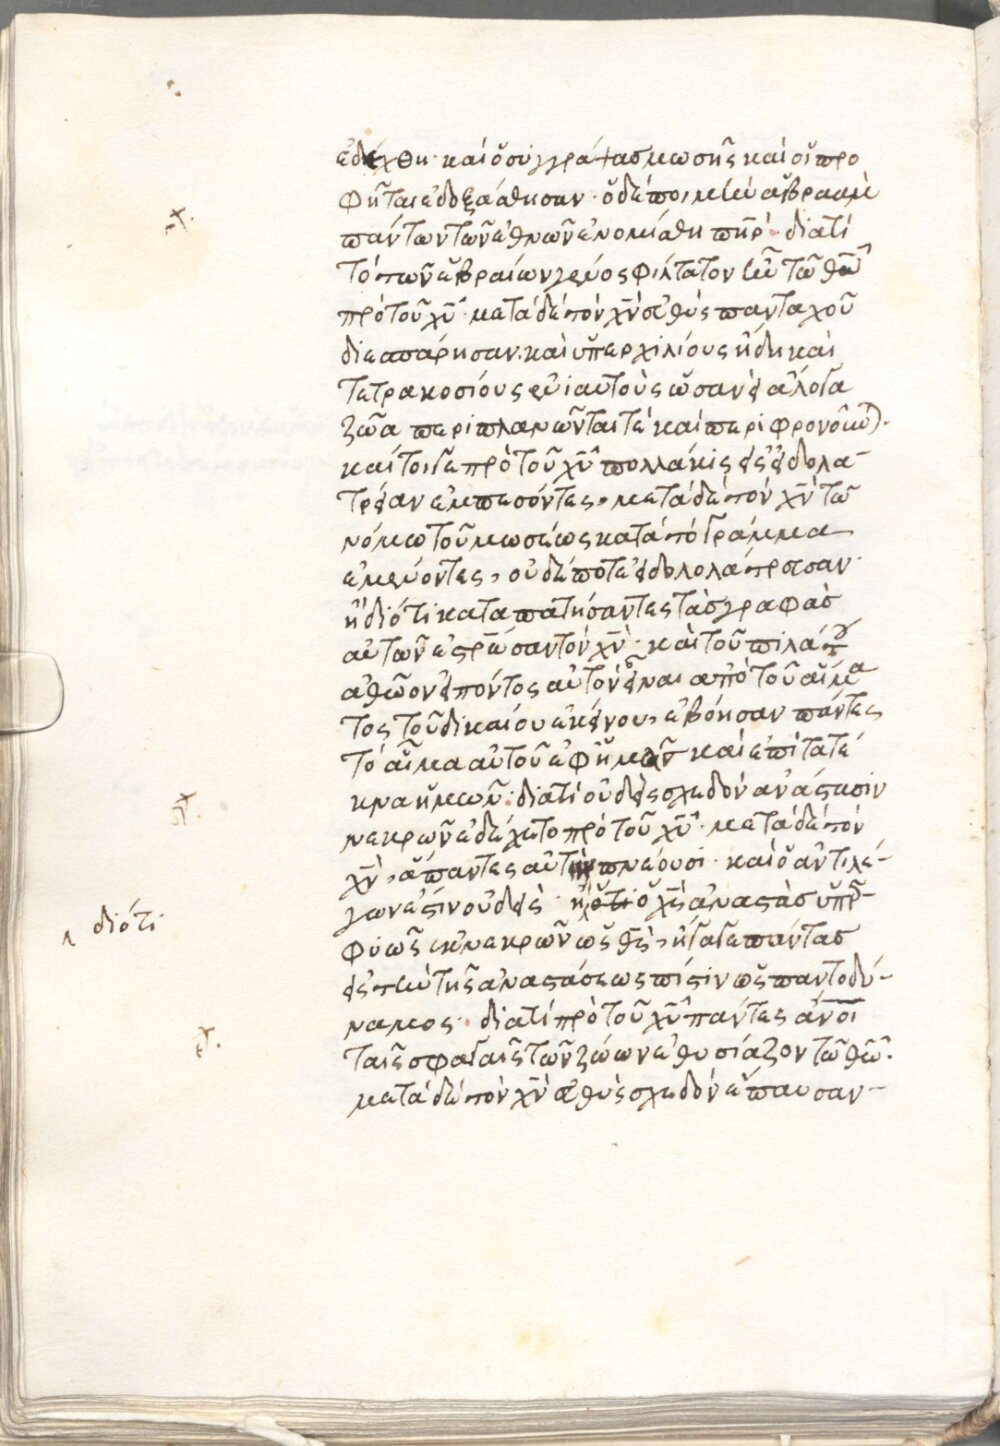 ἐδέχθη· καὶ ὁ συγγράψας μωσῆς καὶ οἱ προ
φῆται ἐδοξάσθησαν· ὁ δὲ ποιμὴν ἀβραὰμ
πάντων τῶν ἐθνῶν ἐνομίσθη πηρ· διατί
τὸ τῶν ἑβραίων γένος φίλτατον ἦν τῶ θῶ
πρὸ τοῦ χυ· μετὰ δὲ τὸν χν εὐθὺς πανταχοῦ
διεσπάρησαν· καὶ ὑπὲρ χιλίους ἤδη καὶ
τετρακοσίους ἐνιαυτοὺς ὡσανεὶ ἄλογα
ζῶα περιπλανῶνταί τε καὶ περιφρονοῦνται·
καίτοιγε πρὸ τοῦ χυ πολλάκις εἰς εἰδολα
τρείαν ἐμπεσόντες, μετὰ δὲ τὸν χν τῶ
νόμω τοῦ μωσέως κατὰ τὸ γράμμα
ἐμμένοντες, οὐδέποτε εἰδολολάτρησαν·
ἢ διότι καταπατήσαντες τὰς γραφὰς
αὐτῶν ἐστρωσαν τὸν χν· καὶ τοῦ πιλάτου
ἀθῶον εἰπόντος αὐτὸν εἶναι ἀπὸ τοῦ αἵμα
τος τοῦ δικαίου ἐκείνου, ἐβόησαν πάντες
τὸ αἷμα αὐτοῦ ἐφ' ἡμᾶς καὶ ἐπὶ τὰ τέ
κνα ἡμῶν· διατί οὐδεὶς σχεδὸν ἀνάστασιν
νεκρῶν ἐδέχετο πρὸ τοῦ χυ· μετὰ δὲ τὸν
χν, ἅπαντες αὐτὴν πνέουσι· καὶ ὁ ἀντιλέ
γων ἐστὶν οὐδείς· ὁ χς ἀναστὰς ὑπερ
φυῶς ἐκ νεκρῶν ὡς θς, ἤγαγε πάντας
εἰς τὴν τῆς ἀναστάσεως πίστιν ὡς παντοδύ
ναμος· διατί πρὸ τοῦ χυ πάντες ἄνοι
ταῖς σφαγαῖς τῶν ζώων ἐθυσίαζον τῶ θῶ·
μετὰ δὲ τὸν χν εὐθὺς σχεδὸν ἔπαυσαν
διότι